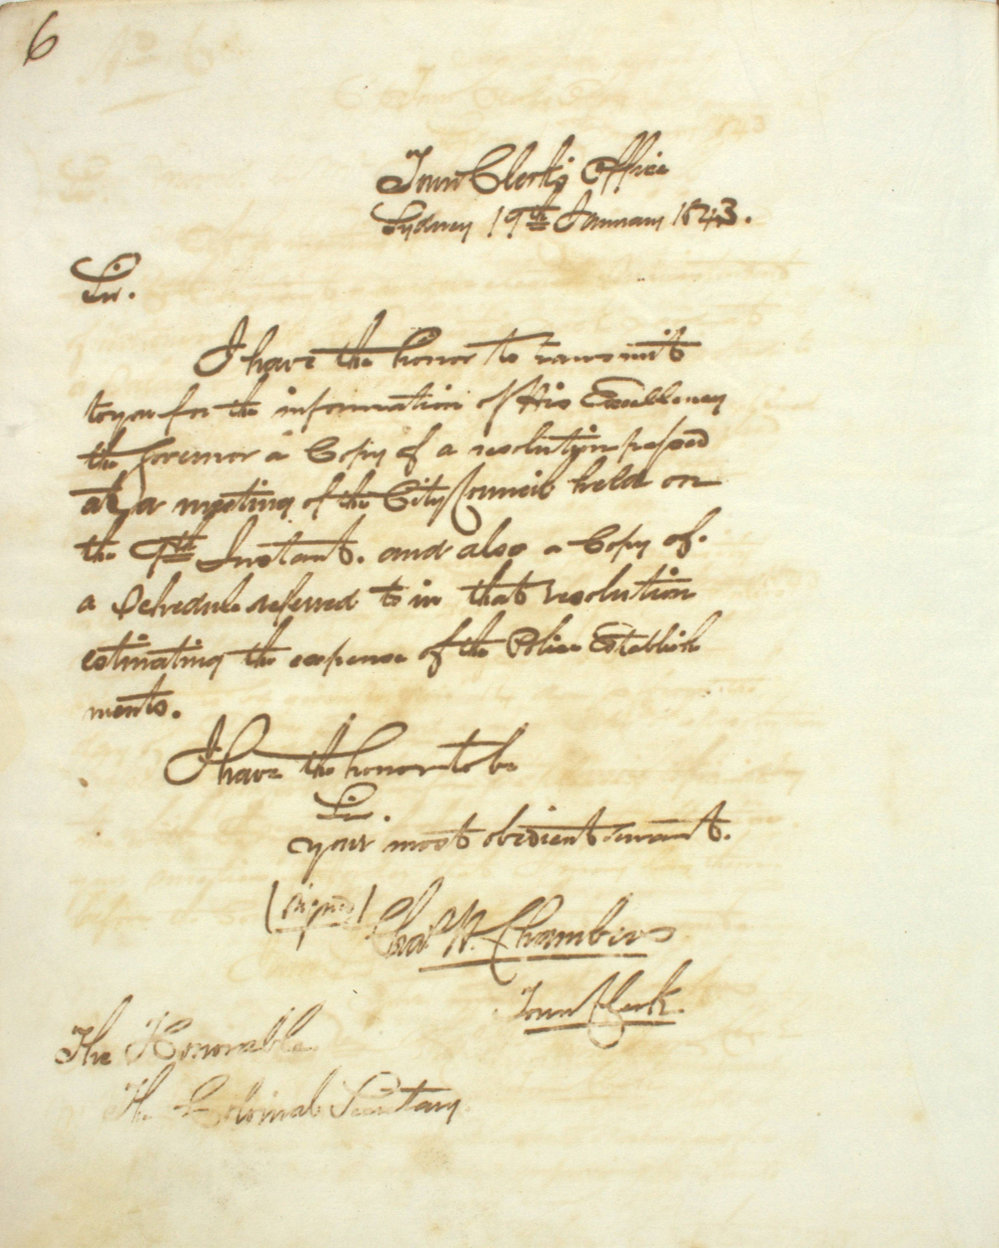 6
Town Clerk's Office
Sydney 19th January 1843.
Sir.
I have the honor to transmit
to you for the information of His Excellency
the Governor a Copy of a resolution passed
at a meeting of the City Council held on
the 9th Instant. and also a Copy of.
a Schedule referred to in that resolution
estimating the expense of the Police Establish
ments.
I have the honor to be
Sir.
your most obedient servant.
(signed) Chas. H. Chambers
Town Clerk.
The Honorable
The Colonial Secretary